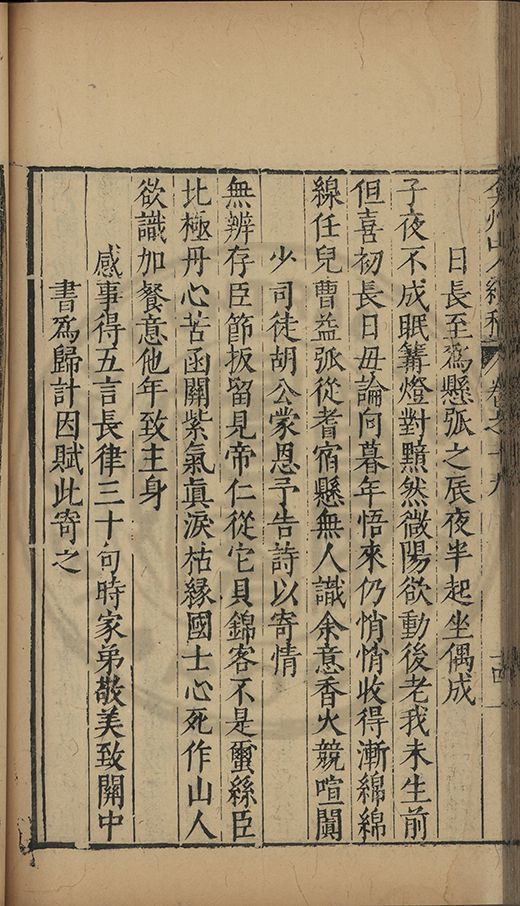 弇州山人續稿 卷之十九 十四
日長至爲懸弧之辰夜半起坐偶成
子夜不成眠篝燈對黯然微陽欲動後老我未生前
但喜初長日毋論向暮年悟來仍悄悄收得漸綿綿
線任兒曹益弧從耆宿懸無人識余意香火競喧闐
少司徒胡公蒙恩予告詩以寄情
無辨存臣節扳留見帝仁從它貝錦客不是璽絲臣
北極丹心苦函關紫氣眞淚枯緣國士心死作山人
欲識加餐意他年致主身
感事得五言長律三十句時家弟敬美致關中
書爲歸計因賦此寄之